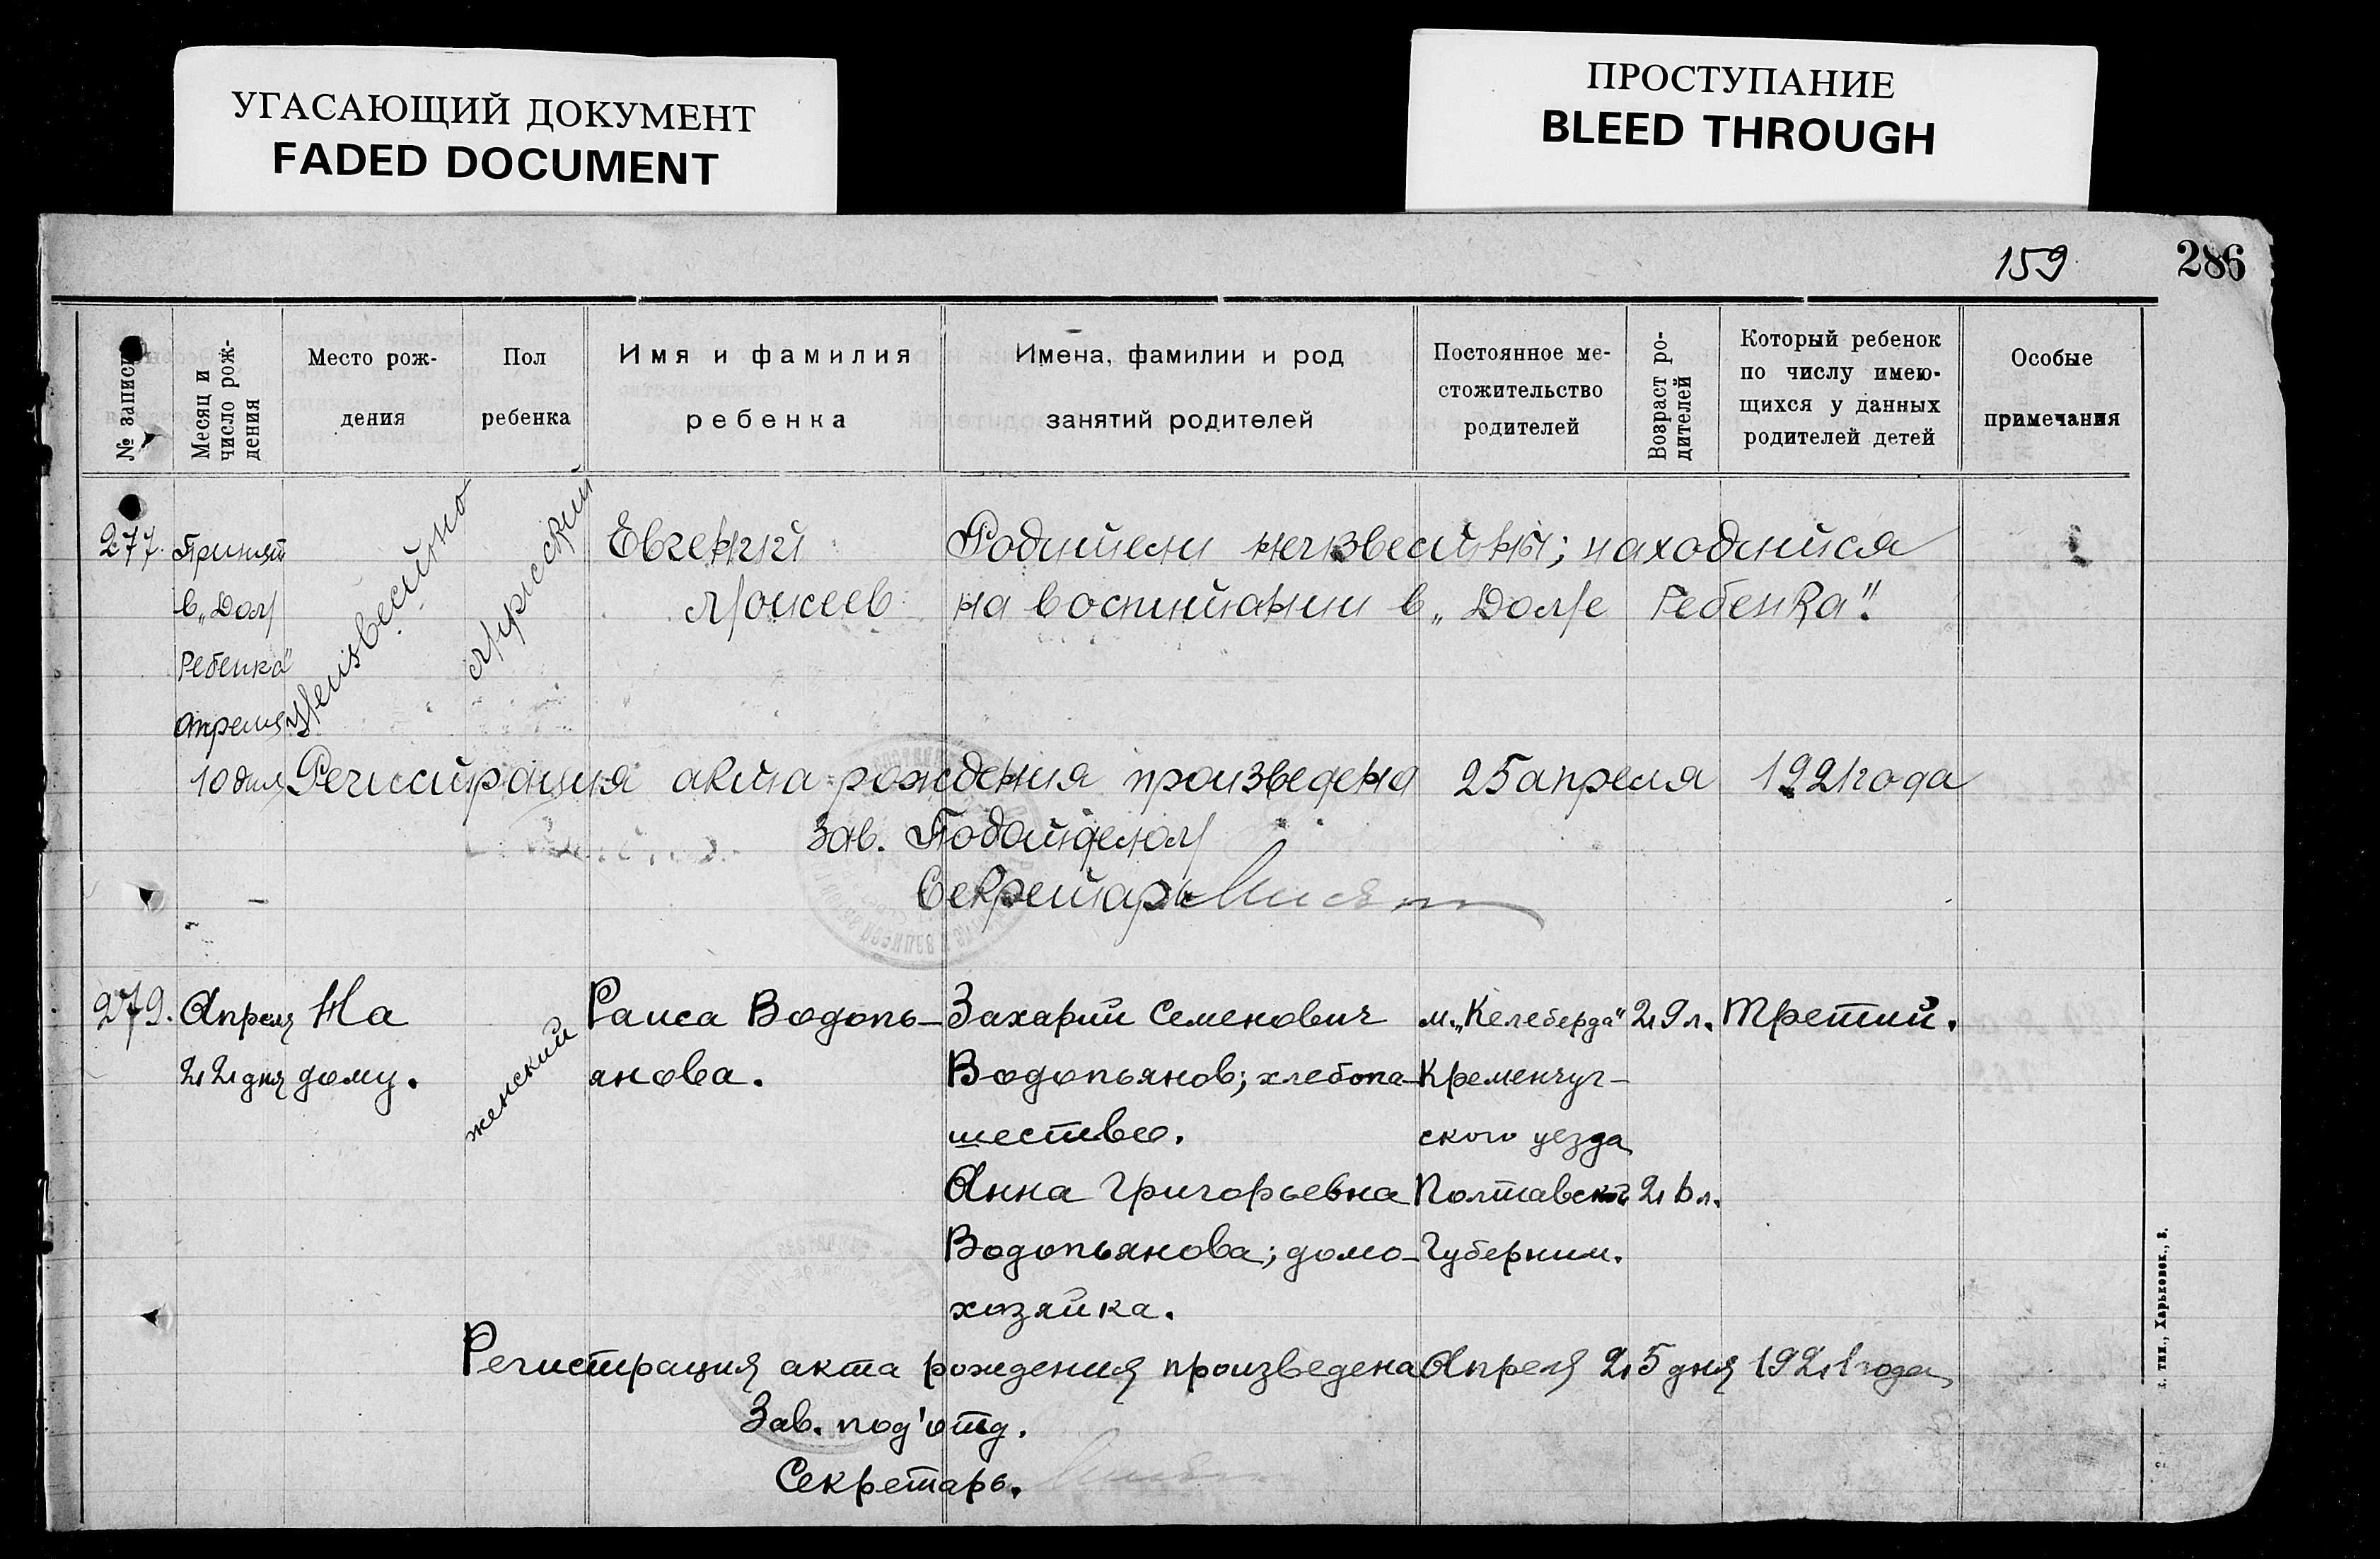 УГАСАЮЩИЙ ДОКУМЕНТ
FADED DOCUMENT
ПРОСТУПАНИЕ
BLEED THROUGH
159
286
№ записи
Месяц и
число рож-
дения
Место рож-
дения
Пол
ребенка
Имя и фамилия
ребенка
Имена, фамилии и род
занятий родителей
Постоянное ме-
стожительство
родителей
Возраст ро-
дителей
Который ребенок
по числу имею-
щихся у данных
родителей детей
Особые
примечания
277.
Принят
в „Дом
Ребенка"
Апреля
10 дня
Неизвестно
Мужской
Евгений
Моисеев
Родители неизвестны; находится
на воспитании в „Доме Ребенка".
Регистрация акта рождения произведена 25 апреля 1921 года
Зав. Подотделом
Секретарь
279.
Апреля
22 дня
На
дому.
женский
Раиса Водопь-
янова.
Захарий Семенович
Водопьянов; хлебопа-
шество.
Анна Григорьевна
Водопьянова; домо-
хозяйка.
м. „Келеберда"
Кременчуг-
ского уезда
Полтавской
Губернии.
29 л.
26 л.
Третий.
Регистрация акта рождения произведена Апреля 25 дня 1921 года
Зав. под'отд.
Секретарь.
тип., Харьковск., 8.